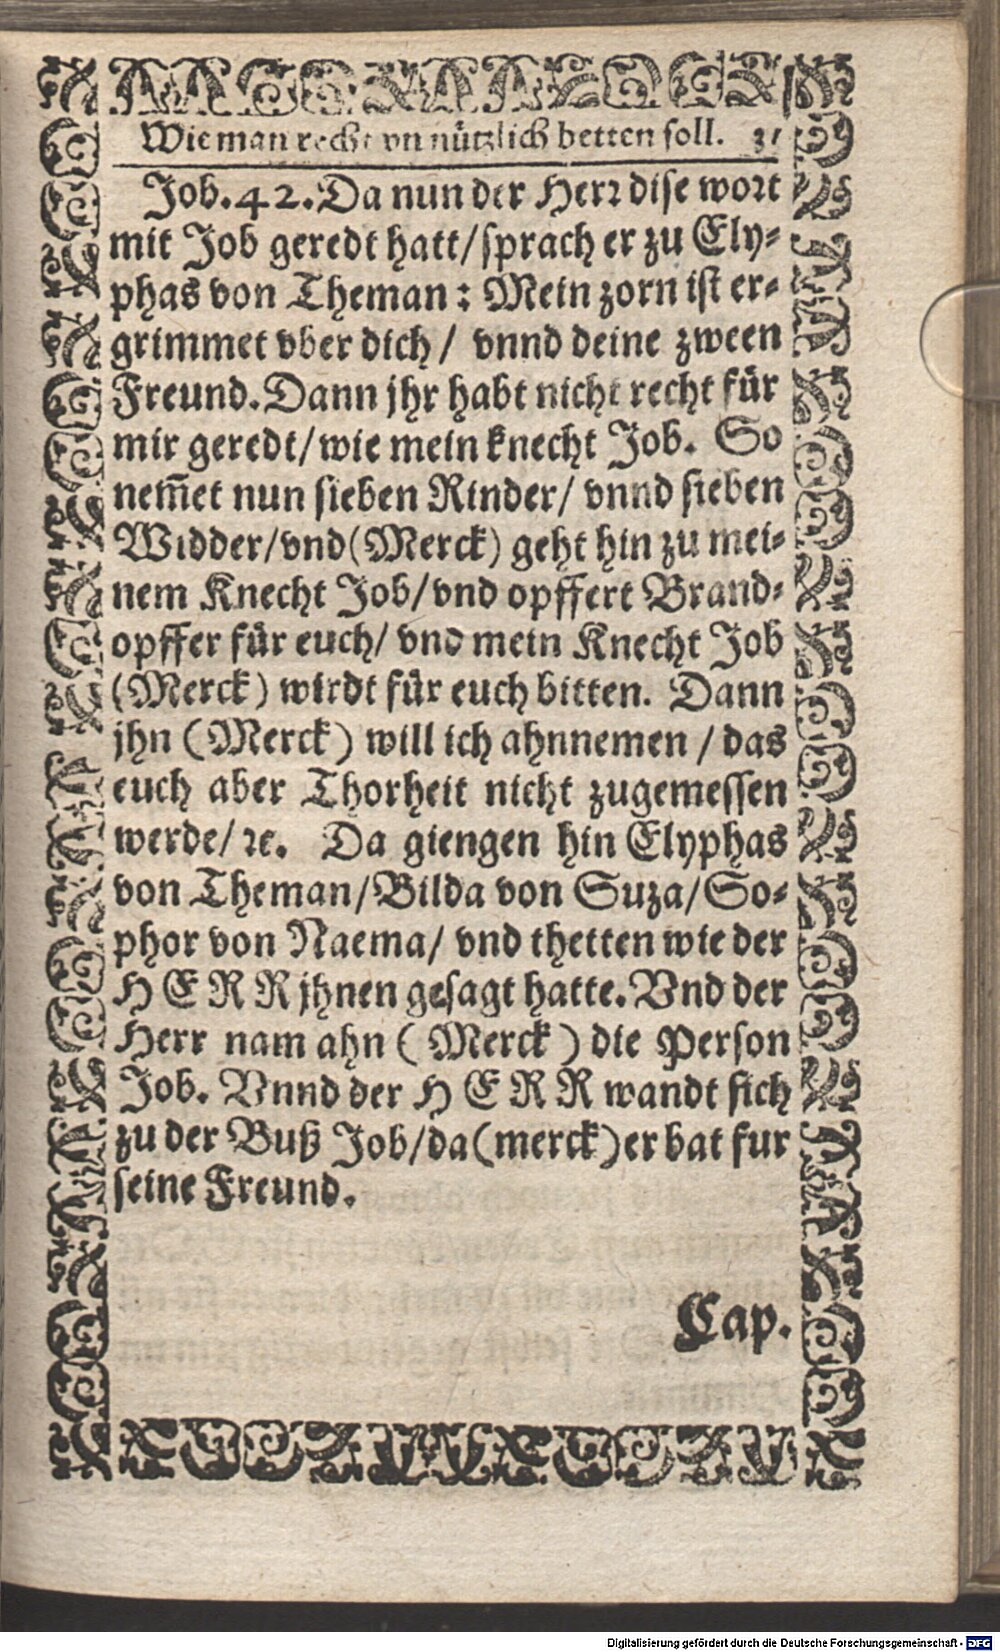 Wie man recht vn nützlich betten soll. 31
Job. 42. Da nun der Herr dise wort
mit Job geredt hatt/ sprach er zu Ely-
phas von Theman: Mein zorn ist er-
grimmet vber dich/ vnnd deine zween
Freund. Dann jhr habt nicht recht für
mir geredt/ wie mein knecht Job. So
nem̄et nun sieben Rinder/ vnnd sieben
Widder/ vnd (Merck) geht hin zu mei-
nem Knecht Job/ vnd opffert Brand-
opffer für euch/ vnd mein Knecht Job
(Merck) wirdt für euch bitten. Dann
jhn (Merck) will ich ahnnemen / das
euch aber Thorheit nicht zugemessen
werde/ ꝛc. Da giengen hin Elyphas
von Theman/ Bilda von Suza/ So-
phor von Naema/ vnd thetten wie der
HERR jhnen gesagt hatte. Vnd der
Herr nam ahn (Merck) die Person
Job. Vnnd der HERR wandt sich
zu der Buß Job/ da (merck) er bat fur
seine Freund.
Cap.
Digitalisierung gefördert durch die Deutsche Forschungsgemeinschaft - DFG